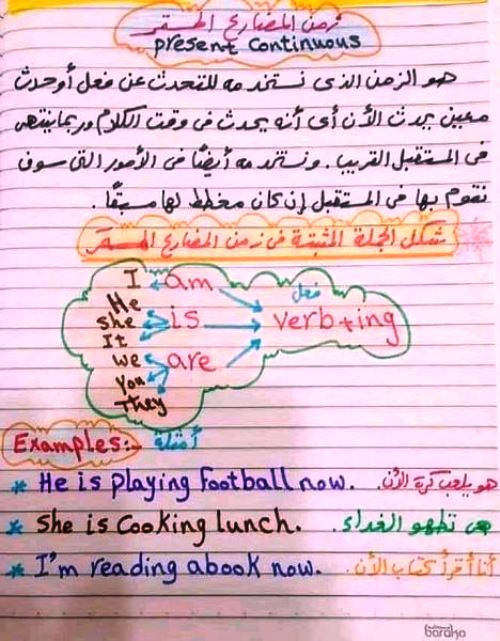 زمن المضارع المستمر
present continuous
هو الزمن الذى نستخدمه للتحدث عن فعل أوحدث
معين يحدث الأن أى أنه يحدث فى وقت الكلام وربما ينتهى
فى المستقبل القريب. ونستخدمه أيضًا فى الأمور التى سوف
نقوم بها فى المستقبل إن كان مخطط لها مسبقًا.
شكل الجملة المثبتة فى زمن المضارع المستمر
I am
He
She is
It
We
You are
They
فعل
verb+ing
Examples:- أمثلة
* He is playing football now. هو يلعب كرة الأن.
* She is cooking lunch. هى تطهو الغداء.
* I'm reading abook now. أنا أقرأ كتاب الأن.